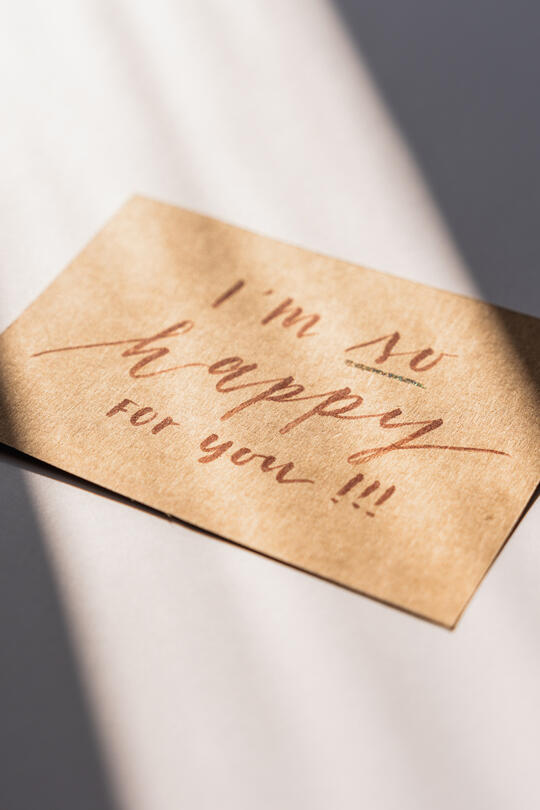 I'm so
happy
FOR you !!!